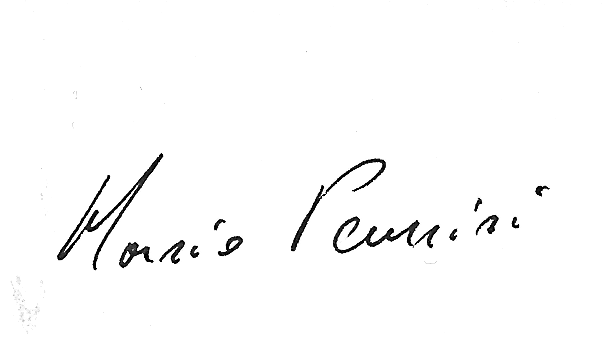 Mario Pennisi